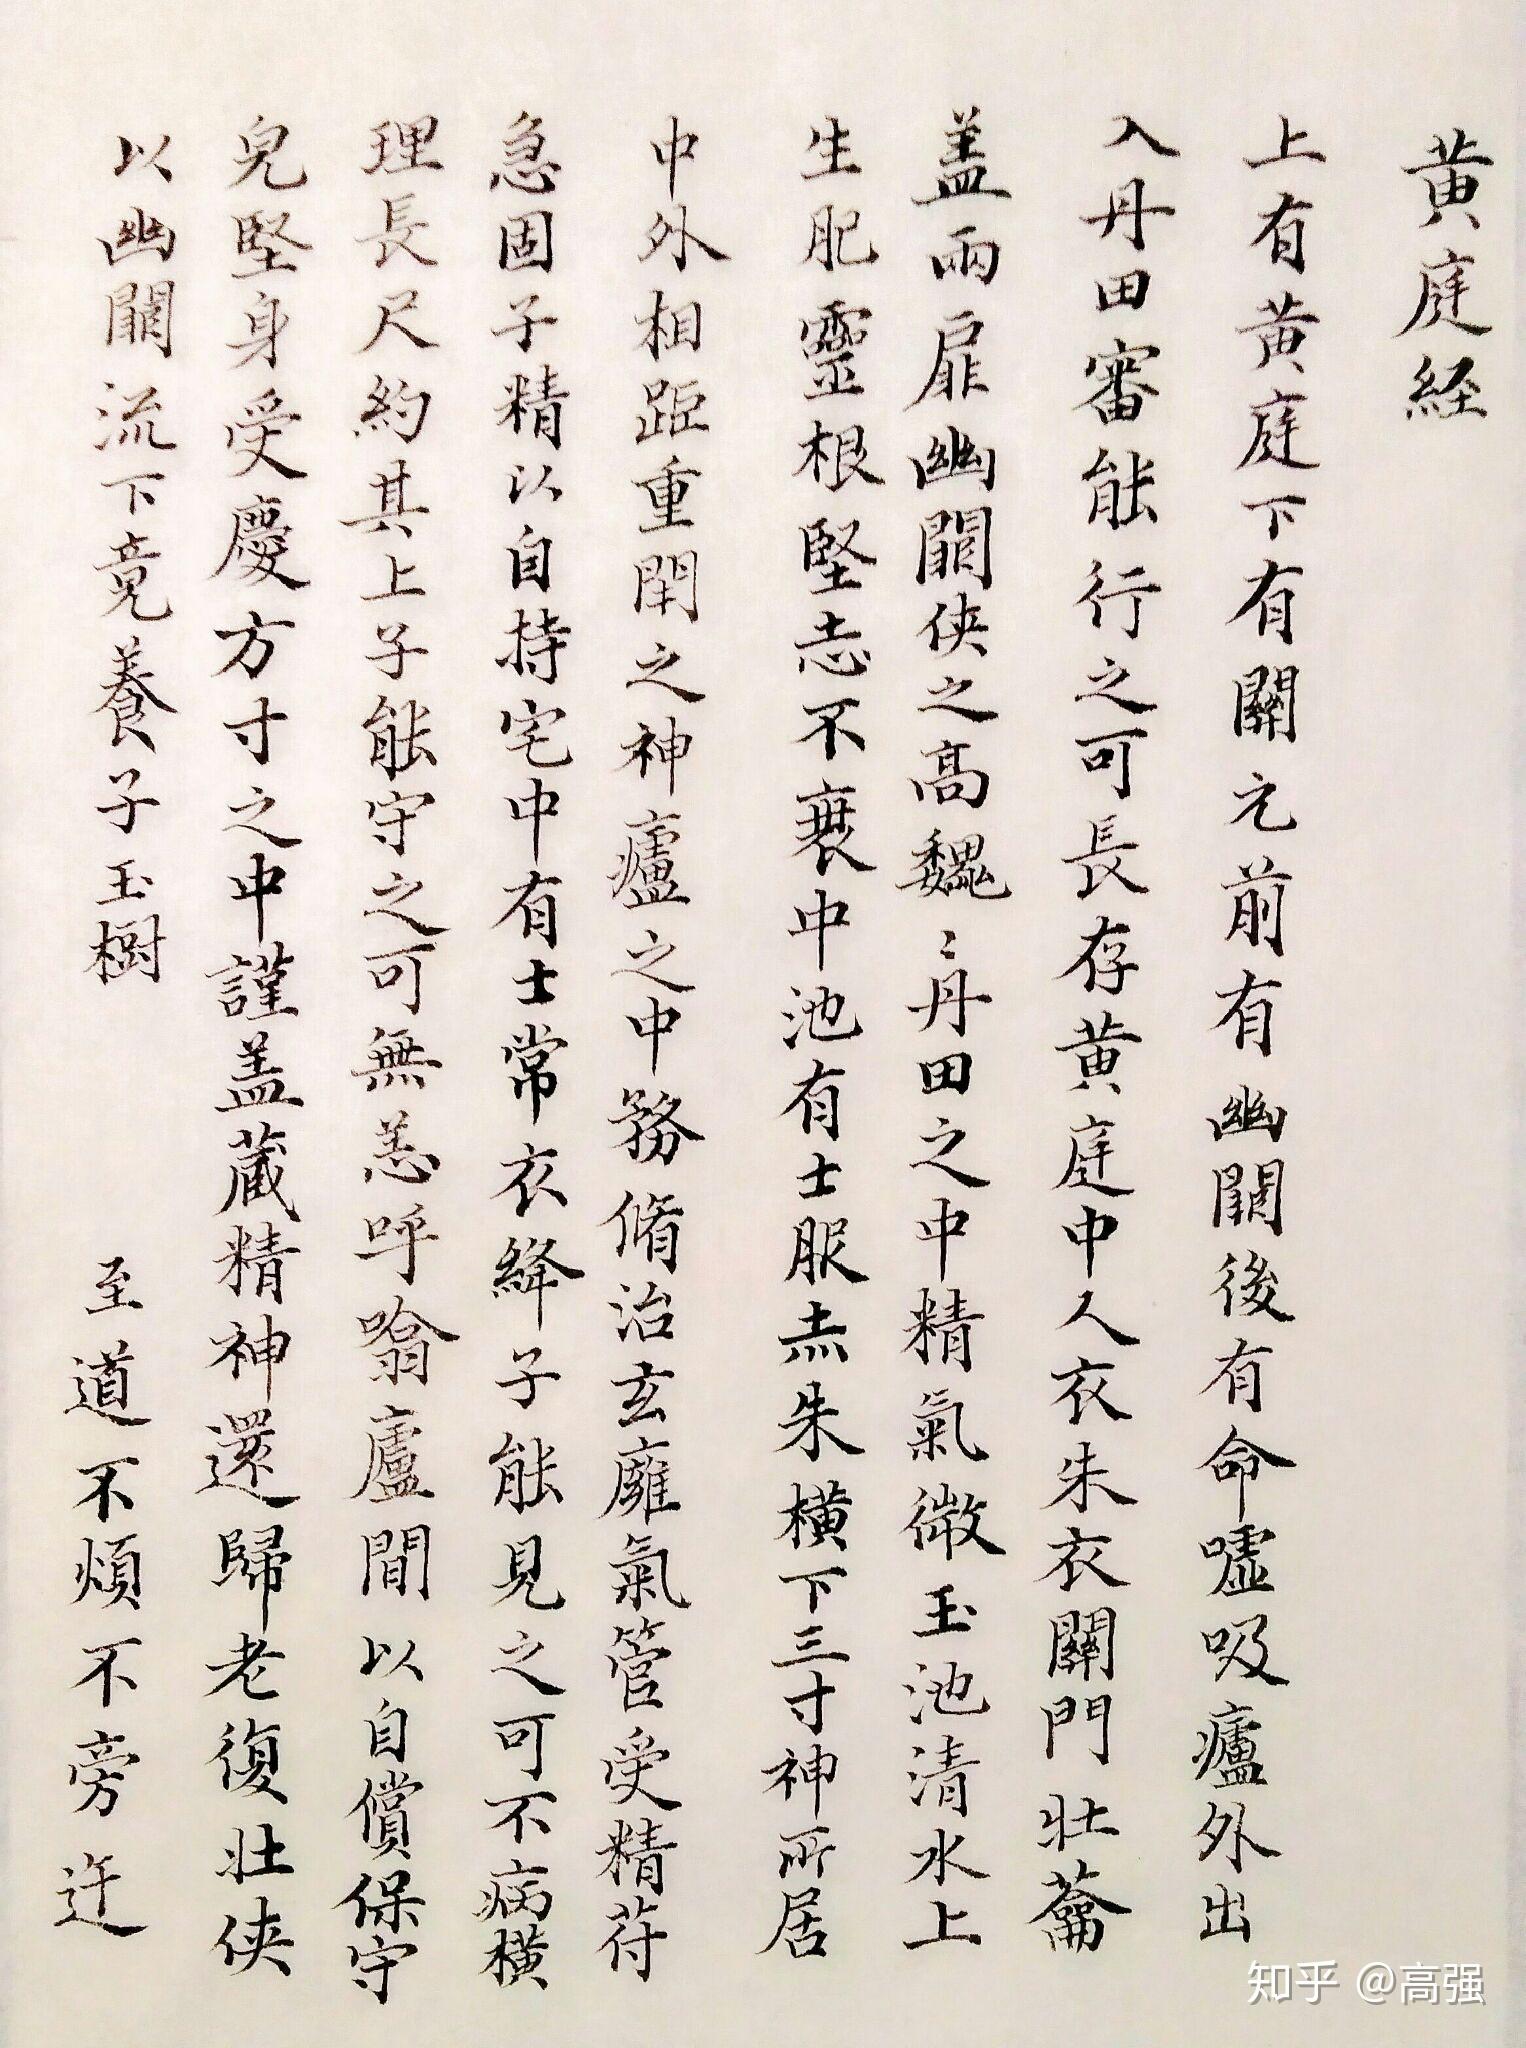 黄庭経
上有黄庭下有關元前有幽闕後有命嘘吸廬外出
入丹田審能行之可長存黄庭中人衣朱衣關門壯蘥
盖兩扉幽闕侠之高魏〻丹田之中精氣微玉池清水上
生肥靈根堅志不衰中池有士服赤朱橫下三寸神所居
中外相距重閇之神廬之中務脩治玄廱氣管受精苻
急固子精以自持宅中有士常衣絳子能見之可不病橫
理長尺約其上子能守之可無恙呼噏廬間以自償保守
皃堅身受慶方寸之中謹盖藏精神還歸老復壯侠
以幽闕流下竟養子玉樹 至道不煩不旁迕
知乎 @高强